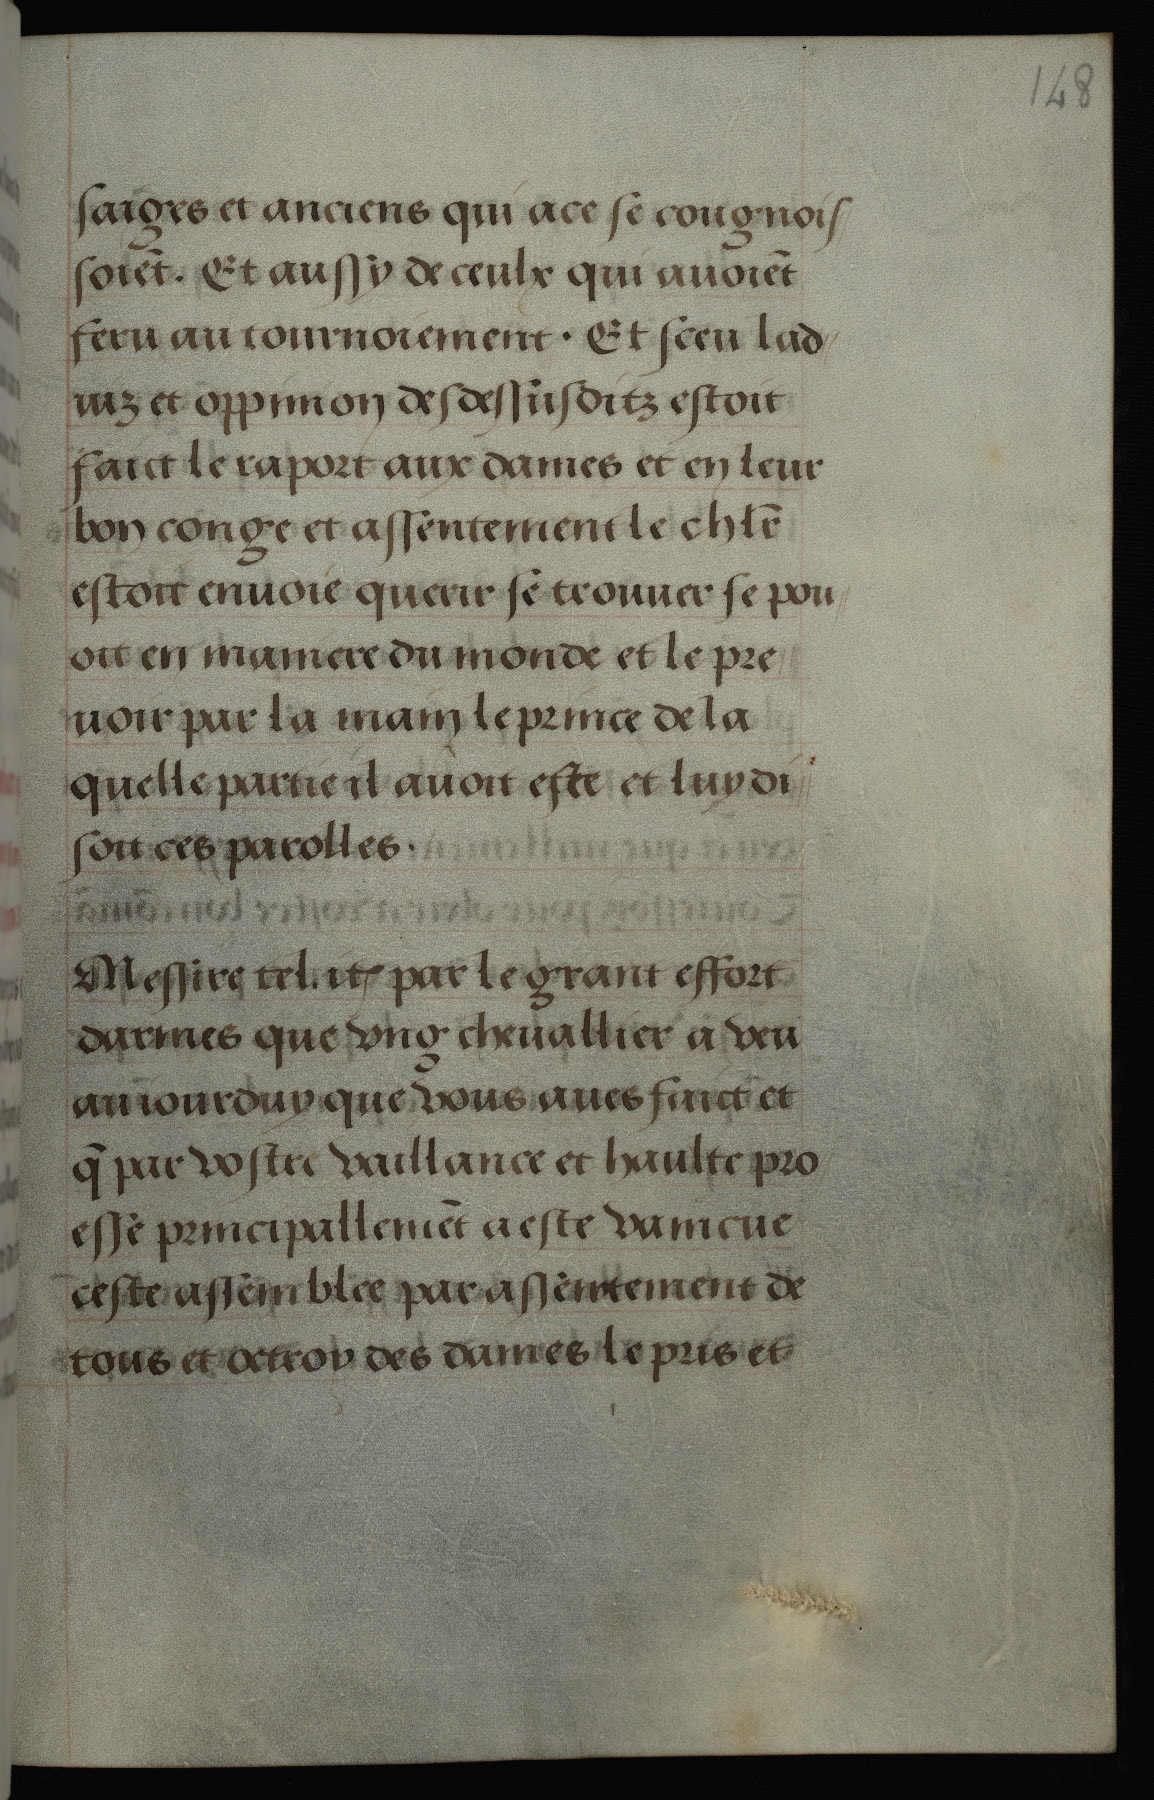 148
saiges et anciens qui a ce se cougnois//
soiēt. Et aussy de ceulx qui auoiēt
feru au tournoiement. Et sceu lad//
uiz et oppinion desdessusditz estoit
faict le raport aux dames et en leur
bon conge et assentement le chlr̄
estoit enuoie querir se trouuer se pou//
oit en maniere du monde et le pre//
noit par la main le prince de la
quelle partie il auoit este et luy di//
soit ces parolles.
Messire tel. itz par le grant effort
darmes que vng cheuallier a veu
au iourduy que vous aues faict et
q̄ par vostre vaillance et haulte pro//
esse principallemēt a este vaincue
ceste assemblee par assentement de
tous et octroy des dames le pris et